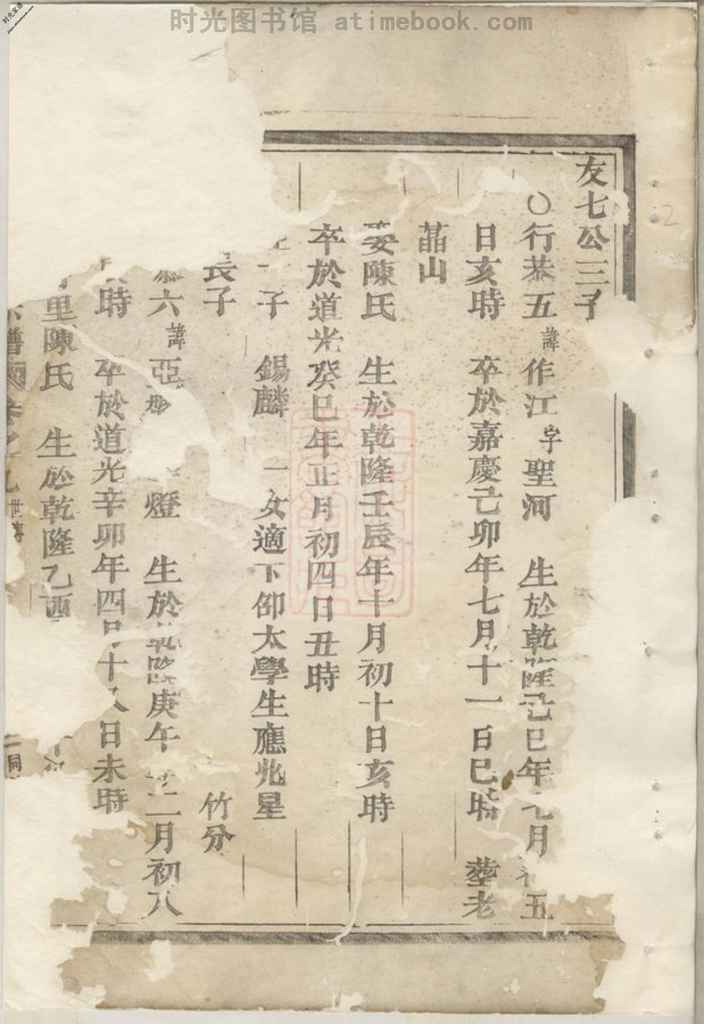 时光图书馆 atimebook.com
友七公三子
○行恭五 諱 作江 字 聖河 生於乾隆己巳年七月初五
日亥時 卒於嘉慶己卯年七月十一日巳時 塟老
茁山
娶陳氏 生於乾隆壬辰年十月初十日亥時
卒於道光癸巳年正月初四日丑時
子 錫麟 一女適下仰太學生應兆星
長子 竹分
六 諱 亞 燈 生於乾隆庚午 二月初八
時 卒於道光辛卯年四月十八日未時
里陳氏 生於乾隆乙酉
譜 卷之 世傳 二 同